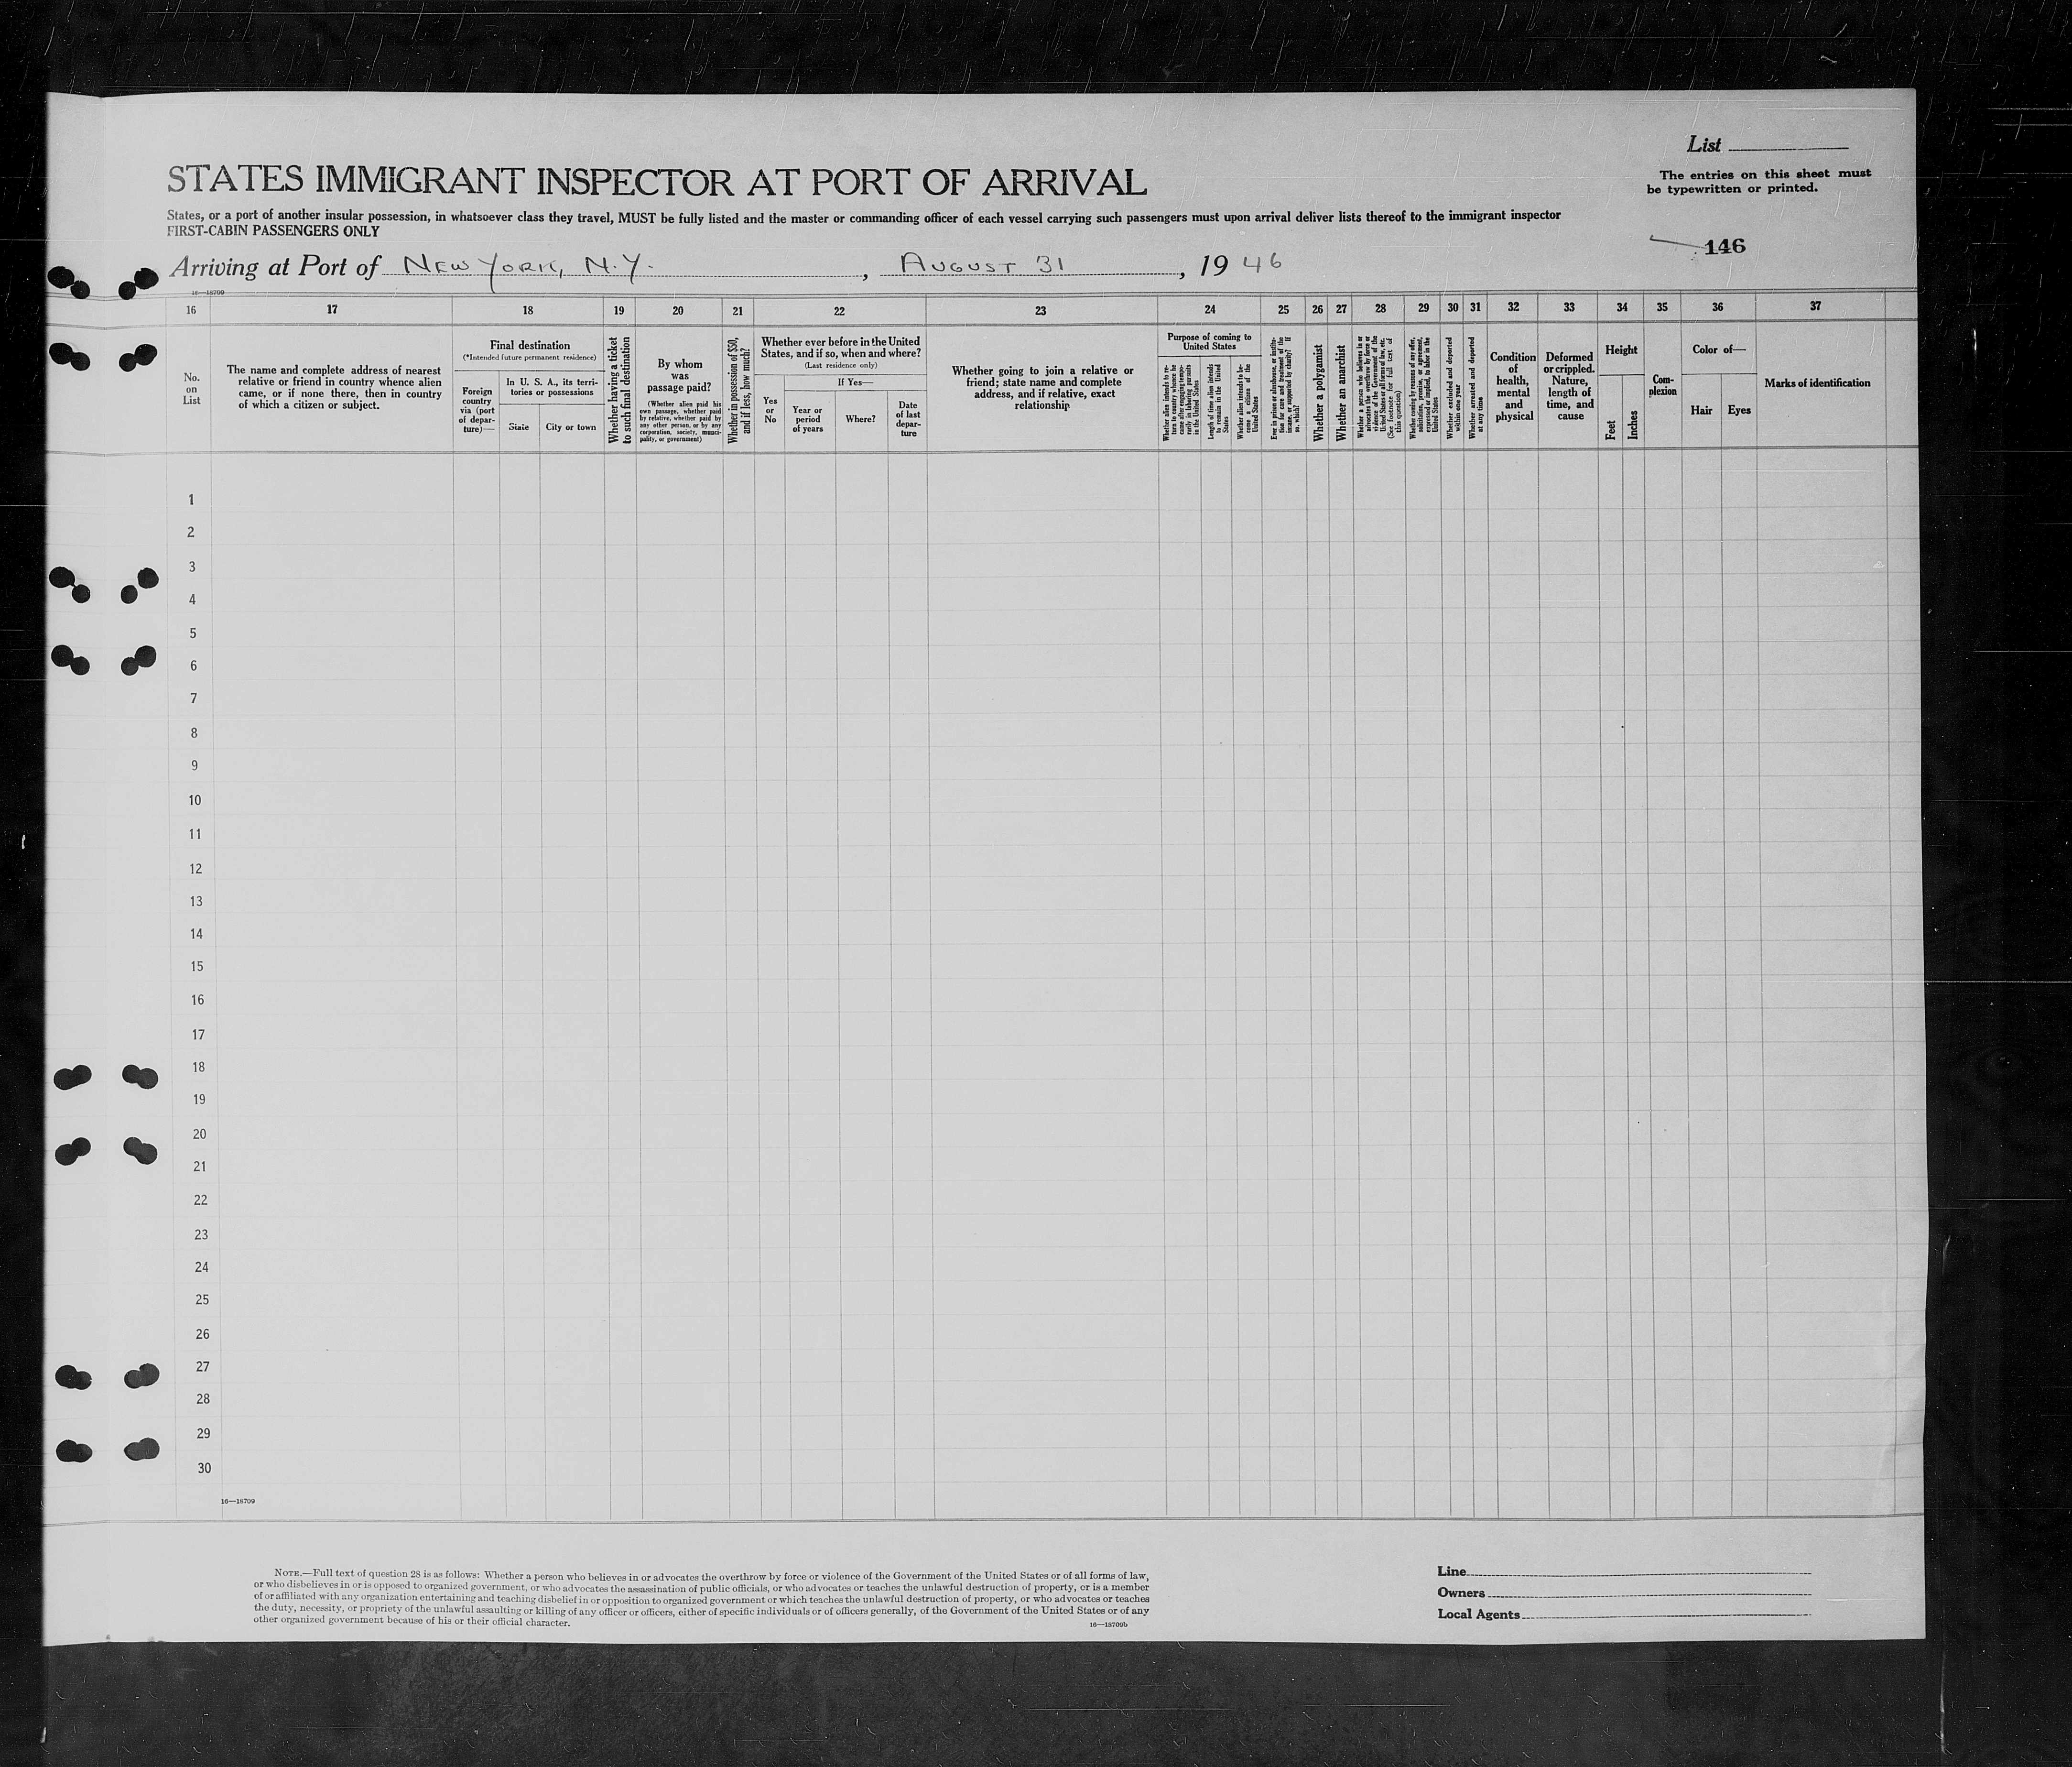 List
The entries on this sheet must
be typewritten or printed.
STATES IMMIGRANT INSPECTOR AT PORT OF ARRIVAL
States, or a port of another insular possession, in whatsoever class they travel, MUST be fully listed and the master or commanding officer of each vessel carrying such passengers must upon arrival deliver lists thereof to the immigrant inspector
FIRST-CABIN PASSENGERS ONLY
146
Arriving at Port of NEW YORK, N.Y. , AUGUST 31 , 19 46
16—18709
16 17 18 19 20 21 22 23 24 25 26 27 28 29 30 31 32 33 34 35 36 37
No.
on
List
The name and complete address of nearest
relative or friend in country whence alien
came, or if none there, then in country
of which a citizen or subject.
Final destination
(*Intended future permanent residence)
Foreign
country
via (port
of depar-
ture)—
In U. S. A., its terri-
tories or possessions
State
City or town
Whether having a ticket
to such final destination
By whom
was
passage paid?
(Whether alien paid his
own passage, whether paid
by relative, whether paid by
any other person, or by any
corporation, society, munici-
pality, or government)
Whether in possession of $50,
and if less, how much?
Whether ever before in the United
States, and if so, when and where?
(Last residence only)
Yes
or
No
If Yes—
Year or
period
of years
Where?
Date
of last
depar-
ture
Whether going to join a relative or
friend; state name and complete
address, and if relative, exact
relationship
Purpose of coming to
United States
Whether alien intends to re-
turn to country whence he
came after engaging tempo-
rarily in laboring pursuits
in the United States
Length of time alien intends
to remain in the United
States
Whether alien intends to be-
come a citizen of the
United States
Ever in prison or almshouse, or institu-
tion for care and treatment of the
insane, or supported by charity? If
so, which?
Whether a polygamist
Whether an anarchist
Whether a person who believes in or
advocates the overthrow by force or
violence of the Government of the
United States or all forms of law, etc.
(See footnote for full text of
this question)
Whether coming by reason of any offer,
solicitation, promise, or agreement,
expressed or implied, to labor in the
United States
Whether excluded and deported
within one year
Whether arrested and deported
at any time
Condition
of
health,
mental
and
physical
Deformed
or crippled.
Nature,
length of
time, and
cause
Height
Feet
Inches
Com-
plexion
Color of—
Hair
Eyes
Marks of identification
1
2
3
4
5
6
7
8
9
10
11
12
13
14
15
16
17
18
19
20
21
22
23
24
25
26
27
28
29
30
16—18709
NOTE.—Full text of question 28 is as follows: Whether a person who believes in or advocates the overthrow by force or violence of the Government of the United States or of all forms of law,
or who disbelieves in or is opposed to organized government, or who advocates the assassination of public officials, or who advocates or teaches the unlawful destruction of property, or is a member
of or affiliated with any organization entertaining and teaching disbelief in or opposition to organized government or which teaches the unlawful destruction of property, or who advocates or teaches
the duty, necessity, or propriety of the unlawful assaulting or killing of any officer or officers, either of specific individuals or of officers generally, of the Government of the United States or of any
other organized government because of his or their official character.
16—18709b
Line
Owners
Local Agents